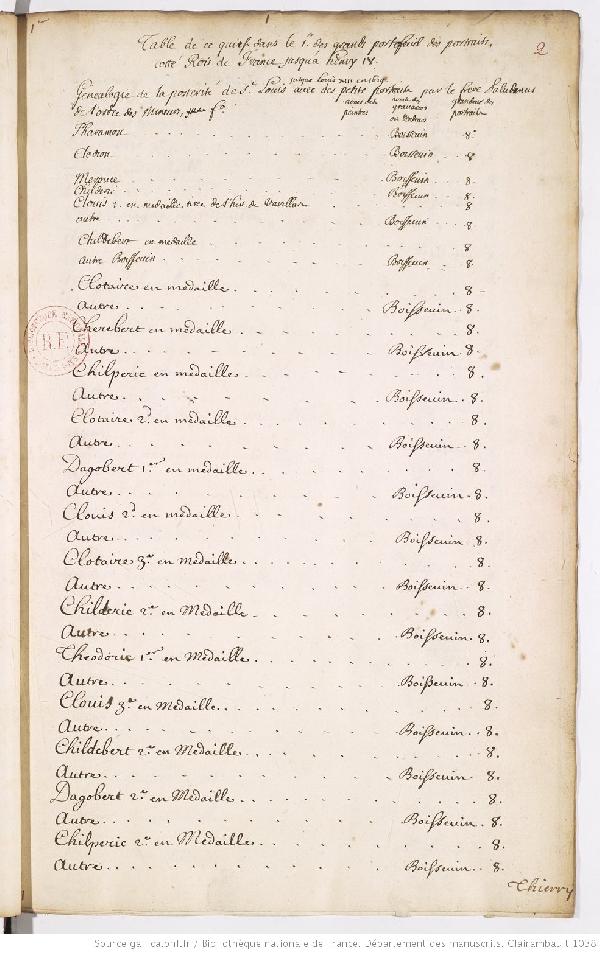 2
Table de ce qui est dans le 1.er des grands portefeuil des portraits,
cotté Rois de France jusqua henry IV.
jusque Louis
Genealogie de la posterité de St. Louis avec des petits portraits par le frere
de l'ordre des minimes, f.o
noms des peintres
noms des graveurs ou
grandeur des portraits
Pharamon . . . Boissevin . 8.
Clodion . . . Boissevin . 8
Merovée . . . Boissevin . 8.
Childeric . . . Boissevin . 8.
Clovis 1. en medaille, tirée de l'his de . . . 8
autre . . . Boissevin . 8
Childebert en medaille . . . 8
autre Boissevin . . . Boissevin . 8.
Clotaire en medaille . . . 8
Autre . . . Boissevin . 8.
Cherebert en medaille . . . 8.
Autre . . . Boissevin 8.
Chilperic en medaille . . . 8.
Autre . . . Boissevin . 8.
Clotaire 2.d en medaille . . . 8.
Autre . . . Boissevin . 8.
Dagobert 1.er en medaille . . . 8.
Autre . . . Boissevin . 8.
Clovis 2.d en medaille . . . 8.
Autre . . . Boissevin . 8.
Clotaire 3.e en medaille . . . 8.
Autre . . . Boissevin . 8.
Childeric 2.e en Medaille . . . 8.
Autre . . . Boissevin . 8.
Theodoric 1.er en Medaille . . . 8.
Autre . . . Boissevin . 8.
Clovis 3.e en Medaille . . . 8.
Autre . . . Boissevin . 8.
Childebert 2.e en Medaille . . . 8.
Autre . . . Boissevin . 8.
Dagobert 2.e en Medaille . . . 8.
Autre . . . Boissevin . 8.
Chilperic 2.e en Medaille . . . 8.
Autre . . . Boissevin . 8.
Thierry
Source gallica.bnf.fr / Bibliothèque nationale de France. Département des manuscrits. Clairambault 1038